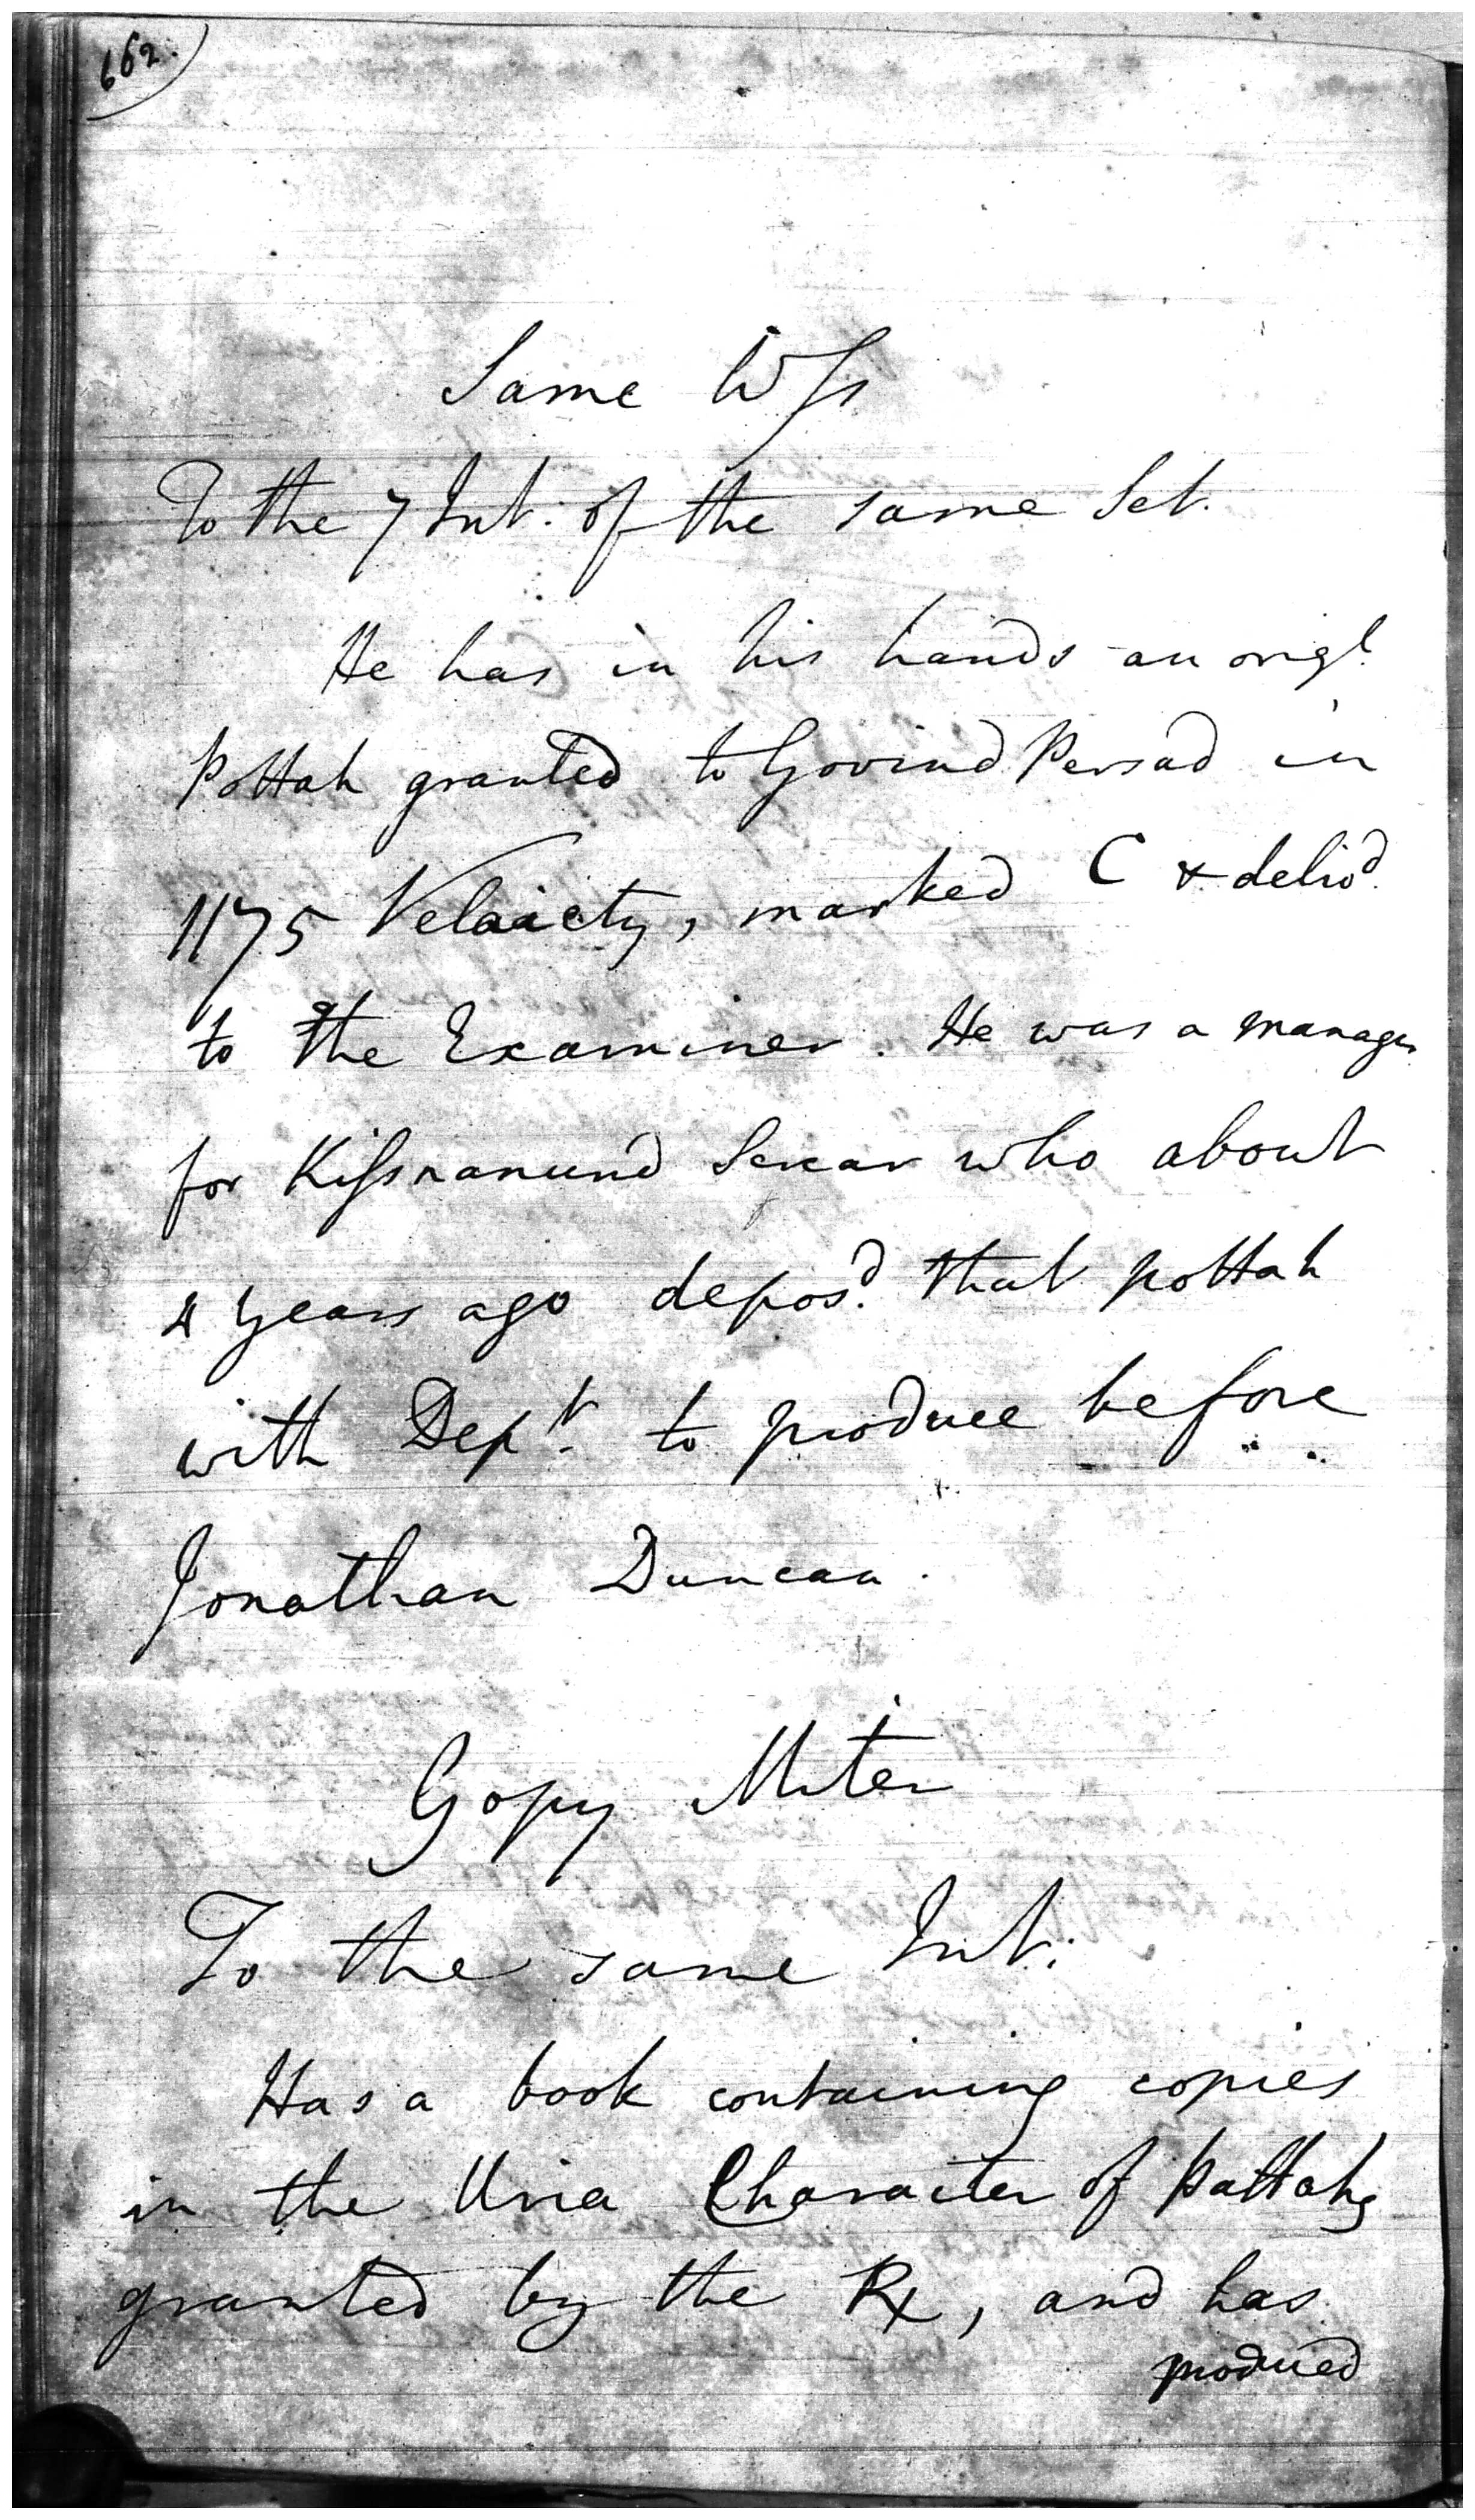 662.
Same Wss
To the 7 Int. of the same Set.
He has in his hands an origl.
Pottah granted to Govind Persad in
1175 Velaiety, marked C & delivd.
to the Examiner. He was a manager
for Kissnanund Sircar who about
4 years ago deposd. that pottah
with Dept. to produce before
Jonathan Duncan.
Gopy Miter
To the same Int:
Has a book containing copies
in the Uria Character of Pattahs
granted by the Rx, and has
produced